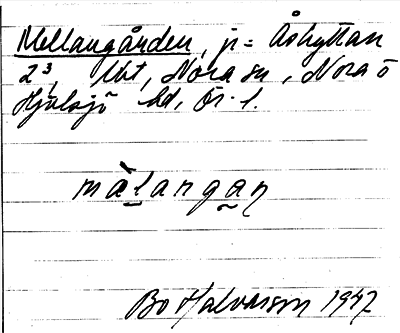 Mellangården, jr = Åshyttan
2³, lbt, Nora sn, Nora o
Hjulsjö bd, Ör. l.
màlangan
Bo Halvarson 1947